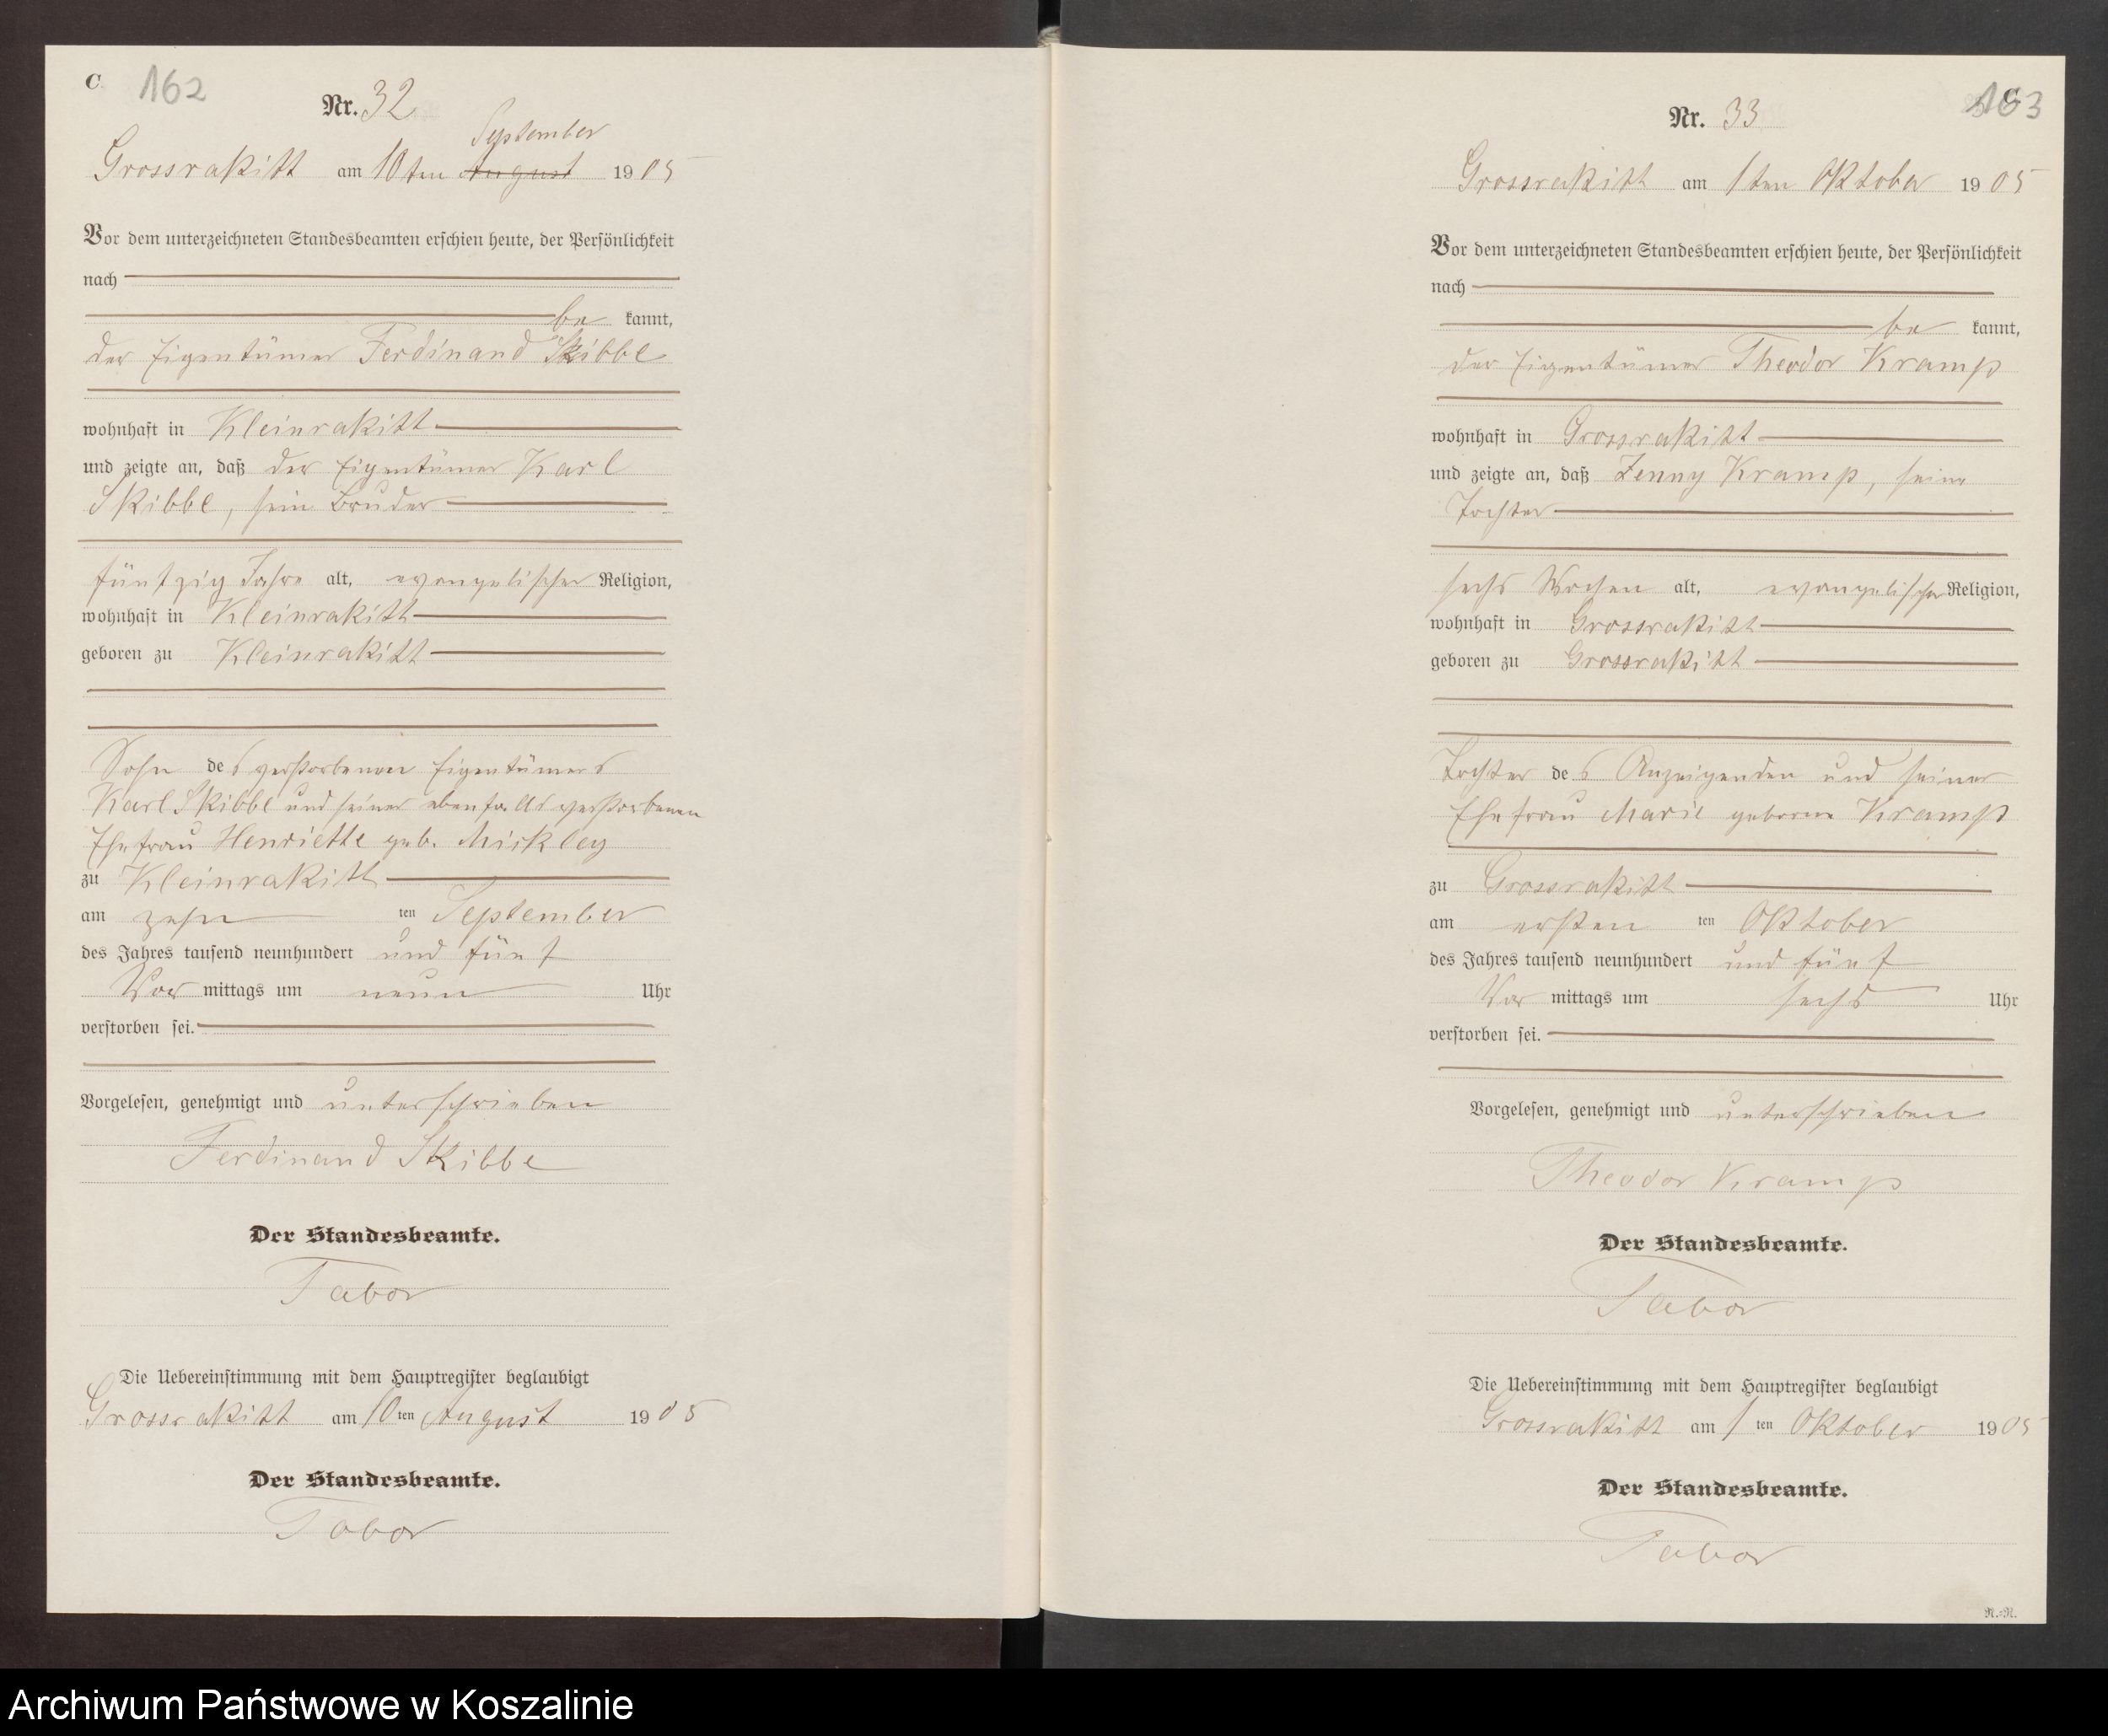 C. 162
Nr. 32
September
Grossrakitt am 10ten August 1905
Vor dem unterzeichneten Standesbeamten erschien heute, der Persönlichkeit
nach
be kannt,
der Eigentümer Ferdinand Skibbe
wohnhaft in Kleinrakitt
und zeigte an, daß der Eigentümer Karl
Skibbe, sein Bruder
fünfzig Jahre alt, evangelischer Religion,
wohnhaft in Kleinrakitt
geboren zu Kleinrakitt
Sohn des verstorbenen Eigentümers
Karl Skibbe und seiner ebenfalls verstorbenen
Ehefrau Henriette geb. Mickley
zu Kleinrakitt
am zehn ten September
des Jahres tausend neunhundert und fünf
Vor mittags um neun Uhr
verstorben sei.
Vorgelesen, genehmigt und unterschrieben
Ferdinand Skibbe
Der Standesbeamte.
Tabor
Die Uebereinstimmung mit dem Hauptregister beglaubigt
Grossrakitt am 10ten August 1905
Der Standesbeamte.
Tabor
163
Nr. 33
Grossrakitt am 1ten Oktober 1905
Vor dem unterzeichneten Standesbeamten erschien heute, der Persönlichkeit
nach
be kannt,
der Eigentümer Theodor Kramp
wohnhaft in Grossrakitt
und zeigte an, daß Jenny Kramp, seine
Tochter
sechs Wochen alt, evangelischer Religion,
wohnhaft in Grossrakitt
geboren zu Grossrakitt
Tochter des Anzeigenden und seiner
Ehefrau Marie geborne Kramp
zu Grossrakitt
am ersten ten Oktober
des Jahres tausend neunhundert und fünf
Vor mittags um sechs Uhr
verstorben sei.
Vorgelesen, genehmigt und unterschrieben
Theodor Kramp
Der Standesbeamte.
Tabor
Die Uebereinstimmung mit dem Hauptregister beglaubigt
Grossrakitt am 1 ten Oktober 1905
Der Standesbeamte.
Tabor
N.-N.
Archiwum Państwowe w Koszalinie